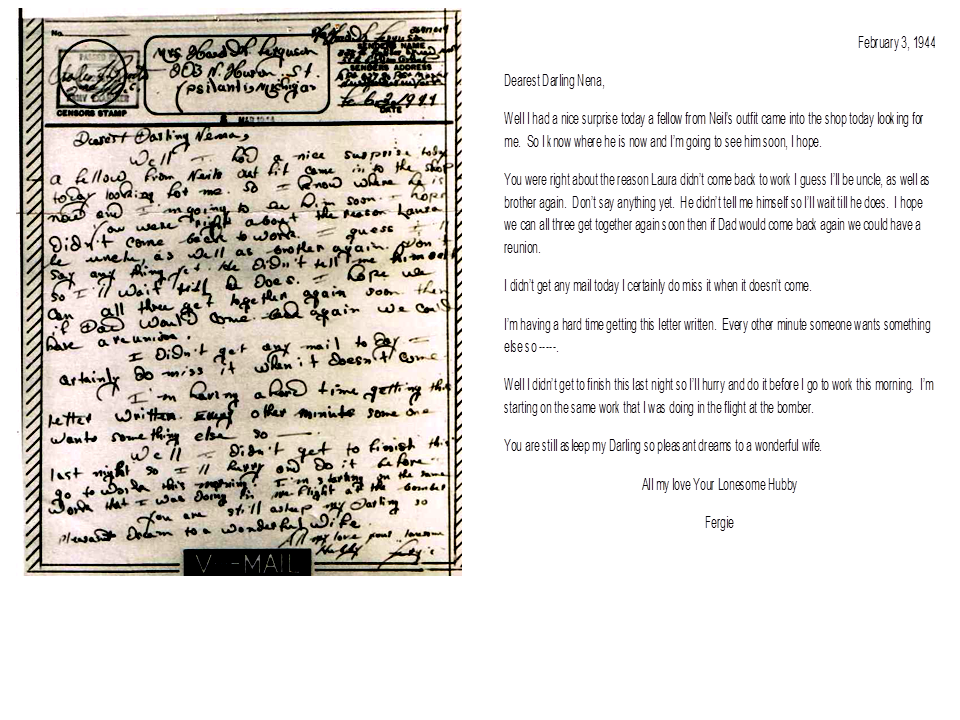 No.
Mrs Hard H. Ferguson
203 N. Huron St.
Ypsilanti Michigan
SENDER'S NAME
SENDER'S ADDRESS
DATE
CENSOR'S STAMP
Dearest Darling Nena,
Well I had a nice surprise today
a fellow from Neils out fit came in to the shop
today looking for me. So I know where he is
now and I'm going to see him soon I hope
You were right about the reason Laura
didn't come back to work I guess I'll
be uncle, as well as brother again. Don't
say any thing yet. He didn't tell me himself
so I'll wait till he does. I hope we
can all three get together again soon then
if Dad would come back again we could
have a reunion.
I didn't get any mail to day I
certainly do miss it when it doesn't come
I'm having a hard time getting this
letter written. Every other minute some one
wants something else so ——.
Well I didn't get to finish this
last night so I'll hurry and do it before I
go to work this morning. I'm starting on the same
work that I was doing in the flight at the bomber
You are still asleep my Darling so
pleasant dreams to a wonderful wife.
All my love your lonesome
Hubby Fergie
V - MAIL
February 3, 1944
Dearest Darling Nena,
Well I had a nice surprise today a fellow from Neil's outfit came into the shop today looking for
me. So I know where he is now and I'm going to see him soon, I hope.
You were right about the reason Laura didn't come back to work I guess I'll be uncle, as well as
brother again. Don't say anything yet. He didn't tell me himself so I'll wait till he does. I hope
we can all three get together again soon then if Dad would come back again we could have a
reunion.
I didn't get any mail today I certainly do miss it when it doesn't come.
I'm having a hard time getting this letter written. Every other minute someone wants something
else so -----.
Well I didn't get to finish this last night so I'll hurry and do it before I go to work this morning. I'm
starting on the same work that I was doing in the flight at the bomber.
You are still asleep my Darling so pleasant dreams to a wonderful wife.
All my love Your Lonesome Hubby
Fergie